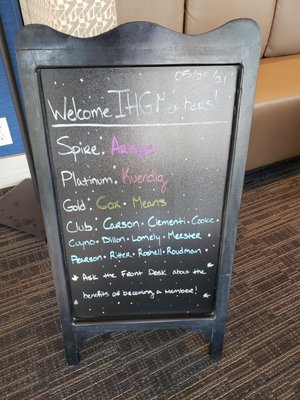 05/24/21
Welcome IHG Members!
Spire: Armye
Platinum: Kuerdig
Gold: Cox • Means
Club: Carson • Clementi • Cooke •
Cuyno • Dillon • Lomely • Meester •
Pearson • Ritter • Roshell • Roudman •
* Ask the Front Desk about the
benefits of becoming a Member! *